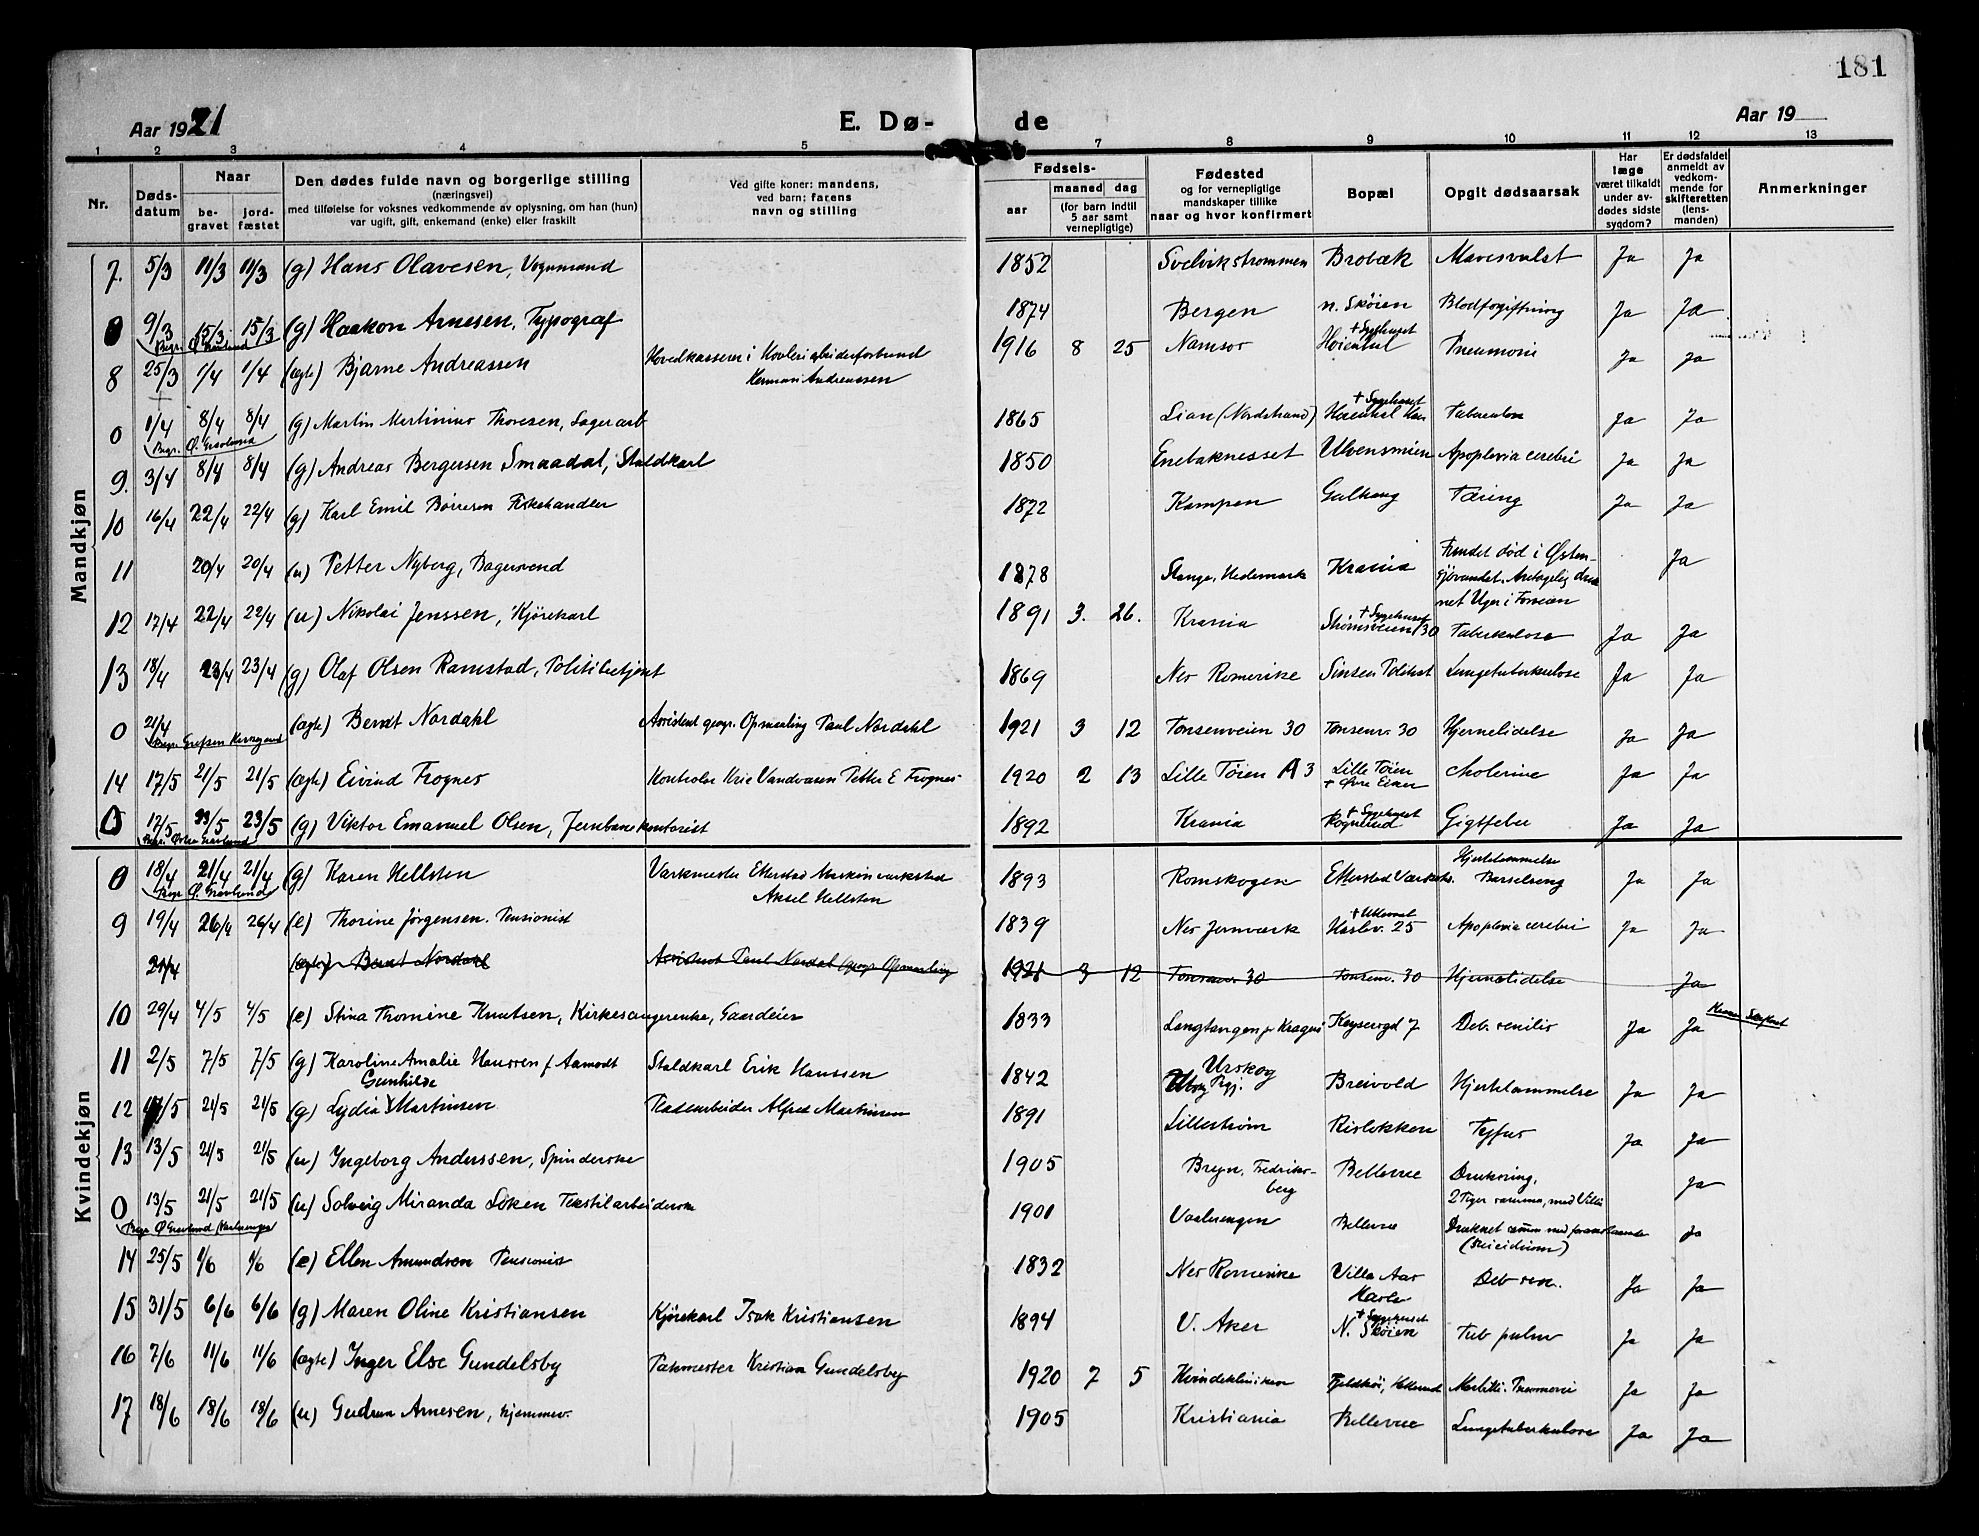 181
Aar 1921
E. Dø-
de
Aar 19
1 2 3 4 5 7 8 9 10 11 12 13
Nr.
Døds-
datum
Naar
be-
gravet
jord-
fæstet
Den dødes fulde navn og borgerlige stilling
(næringsvei)
med tilføielse for voksnes vedkommende av oplysning, om han (hun)
var ugift, gift, enkemand (enke) eller fraskilt
Ved gifte koner: mandens,
ved barn: farens
navn og stilling
Fødsels-
aar
maaned dag
(for barn indtil
5 aar samt
vernepligtige)
Fødested
og for vernepligtige
mandskaper tillike
naar og hvor konfirmert
Bopæl
Opgit dødsaarsak
Har
læge
været tilkaldt
under av-
dødes sidste
sygdom?
Er dødsfaldet
anmeldt av
vedkom-
mende for
skifteretten
(lens-
manden)
Anmerkninger
Mandkjøn
7. 5/3 11/3 11/3 (g) Hans Olavesen, Vognmand 1852 Svelvikstrømmen Brobæk Mavesvulst Ja Ja
0 9/3 15/3 15/3 (g) Haakon Arnesen, Typograf 1874 Bergen n. Skøien Blodforgiftning Ja Ja
Begr. Ø. Gravlund
8 25/3 1/4 1/4 (ægte) Bjarne Andreassen Hovedkasserer i Hovleriarbeiderforbund 1916 8 25 Namsos + Sygehuset Høienhal Pneumoni Ja Ja
Herman Andreassen
0 1/4 8/4 8/4 (g) Martin Martinius Thoresen, Lagerarb 1865 Lian (Nordstrand) + Sygehuset Høienhal Tuberkulose Ja Ja
Begr. Ø. Gravlund
9. 3/4 8/4 8/4 (g) Andreas Bergersen Smaadal, Staldkarl 1850 Enebaknesset Ulvensveien Apoplexia cerebri Ja Ja
10 16/4 22/4 22/4 (g) Karl Emil Børresen Fiskehandler 1872 Kampen Galhaug Tæring Ja Ja
11 20/4 20/4 (u) Petter Nyberg, Bagersvend 1878 Stange, Hedemark Krania Fundet død i Østen-
sjøvandet. Antagelig druk
net Uger i Forveien Ja
12 17/4 22/4 22/4 (u) Nikolai Jenssen, Kjørekarl 1891 3. 26. Krania + Sygehuset Strømsveien 130 Tuberkulose Ja Ja
13 18/4 23/4 23/4 (g) Olaf Olsen Ramstad, Politibetjent 1869 Nes Romerike Sinsen Politist Lungetuberkulose Ja Ja
0 21/4 (ægte) Berndt Nordahl Assistent geogr. Opmaaling Paul Nordahl 1921 3 12 Tonsenveien 30 Tonsenv. 30 Hjernelidelse Ja Ja
Begr. Grefsen Kirkegaard
14 17/5 21/5 21/5 (ægte) Eivind Frognes Kontrolør Kria Vandvæsen Petter E Frognes 1920 2 13 Lille Tøien A 3 Lille Tøien + Øvre Eiker Cholerine Ja Ja
0 17/5 23/5 23/5 (g) Viktor Emanuel Olsen, Jernbanekontorist 1892 Krania + Sygehuset Rognerud Gigtfeber Ja Ja
Begr. Østre Gravlund
Kvindekjøn
0 18/4 21/4 21/4 (g) Karen Hellsten Værkmester Etterstad Maskinværksted 1893 Romskogen Etterstad Værksts. Hjertelammelse Barselseng Ja Ja
Begr. Ø. Gravlund Aksel Hellsten
9 19/4 26/4 26/4 (e) Thorine Jørgensen. Pensionist 1839 Nes Jernværk + Ullevaal Haslev. 25 Apoplexia cerebri Ja Ja
21/4 (ægte) Berndt Nordahl Assistent Paul Nordal geogr. Opmaaling 1921 3 12 Tonsenv. 30 Tonsenv. 30 Hjernelidelse Ja
10 29/4 4/5 4/5 (e) Stina Thomine Knutsen, Kirkesangerenke, Gaardeier 1833 Langtangen pr Kragerø Keysersgd 7 Deb. senilis Ja Ja
11 2/5 7/5 7/5 (g) Karoline Amalie Hanssen f Aamodt Staldkarl Erik Hanssen 1842 Urskog Breivold Hjertelammelse Ja Ja
12 17/5 21/5 21/5 (g) Lydia Gunhilde Martinsen Pladsarbeider Alfred Martinsen 1891 Lillestrøm Risløkken Tyfus Ja Ja
13 13/5 21/5 21/5 (u) Ingeborg Anderssen, Spinderske 1905 Bryn, Fredriks-
berg Bellevue Drukning,
Ja
0 13/5 21/5 21/5 (u) Solveig Miranda Løken Tekstilarbeiderske 1901 Vaalerengen Bellevue Druknet samm med foranstaaende
(Suicidium) Ja
Begr Ø Gravlund
14 25/5 1/6 1/6 (e) Ellen Amundsen Pensionist 1832 Nes Romerike Villa Aas
Hasle Deb sen. Ja Ja
15 31/5 6/6 6/6 (g) Maren Oline Kristiansen Kjørekarl Isak Kristiansen 1894 V. Aker + Sygehuset
N. Skøien Tub pulm Ja Ja
16 7/6 11/6 11/6 (ægte) Inger Else Gundelsby Pakmester Kristian Gundelsby 1920 7 5 Kvindeklinikken Morbilli. Pneumoni Ja Ja
17 18/6 18/6 18/6 (u) Gudrun Arnesen, hjemmev. 1905 Kristiania Bellevue Lungetuberkulose Ja Ja